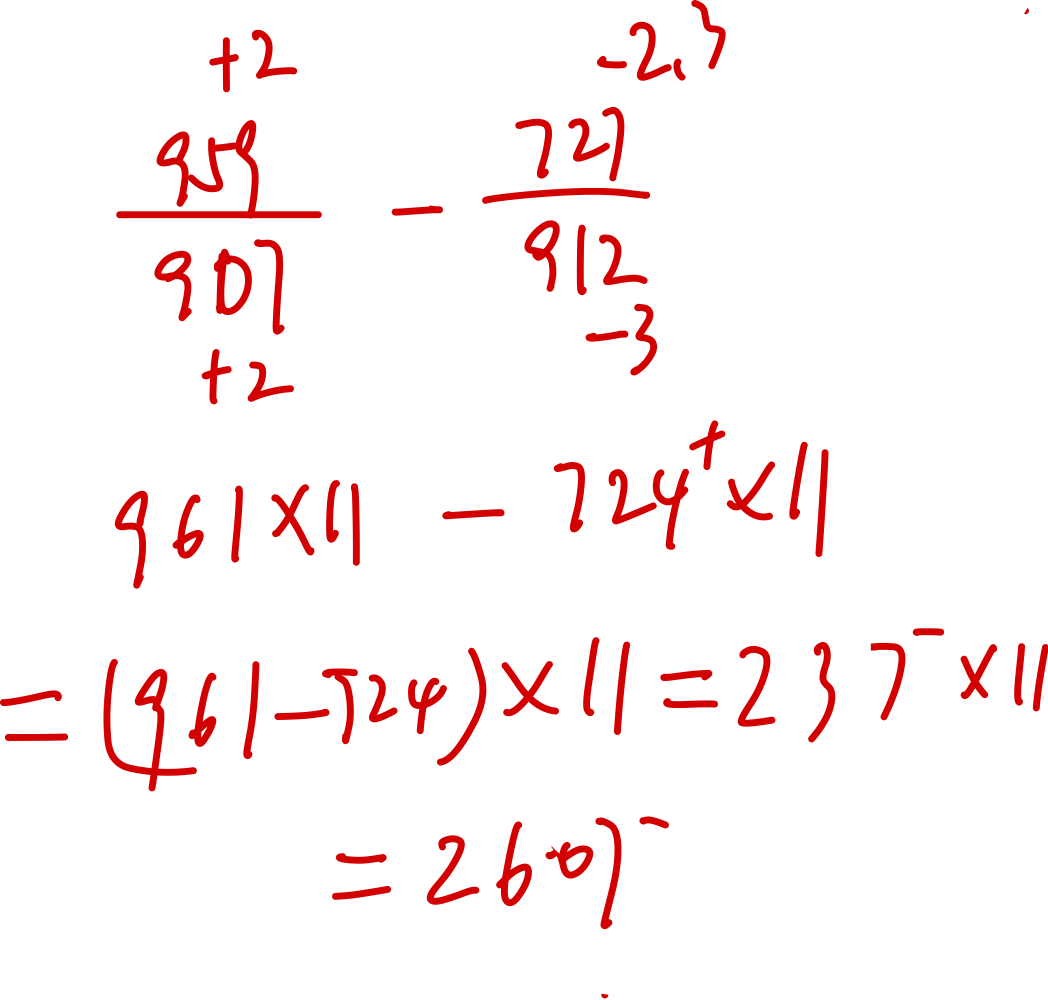 +2 -2.3
959 - 727
907 912
+2 -3
961×11 - 724⁺×11
=(961-724)×11=237⁻×11
=2607⁻